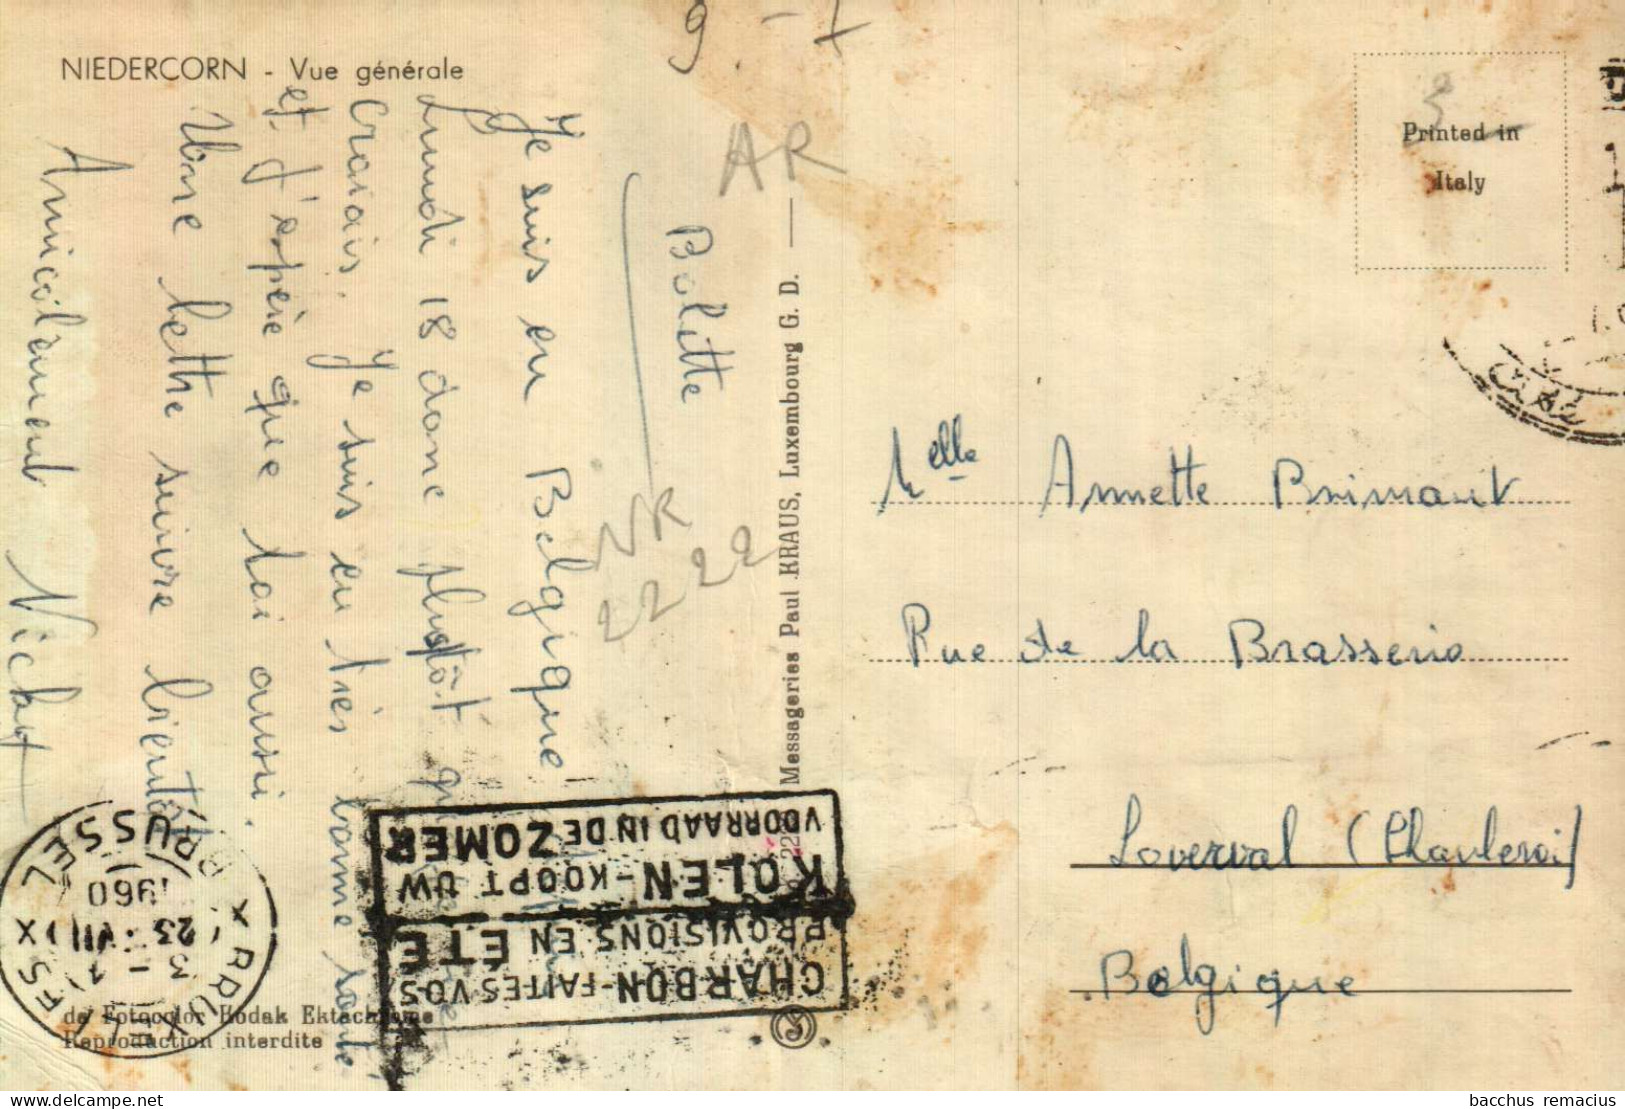 NIEDERCORN - Vue générale
9 - 7
AR
Bolette
NR
2222
Je suis en Belgique
lundi 18 donc plustôt
Crarais. Je suis en très bonne santé
et j'espère que toi aussi.
Une lettre suivre bientôt
Amicalement Vicky
Messageries Paul KRAUS, Luxembourg G. D. —
Printed in
Italy
Melle Annette Brimant
Rue de la Brasserie
Loverval (Charleroi)
Belgique
CHARBON-FAITES VOS
PROVISIONS EN ÉTÉ
KOLEN-KOOPT UW
VOORRAAD IN DE ZOMER
X BRUXELLES X BRUSSEL
23 VII
1960
da Fotocolor Kodak Ektachrome
Reproduction interdite
bacchus remacius